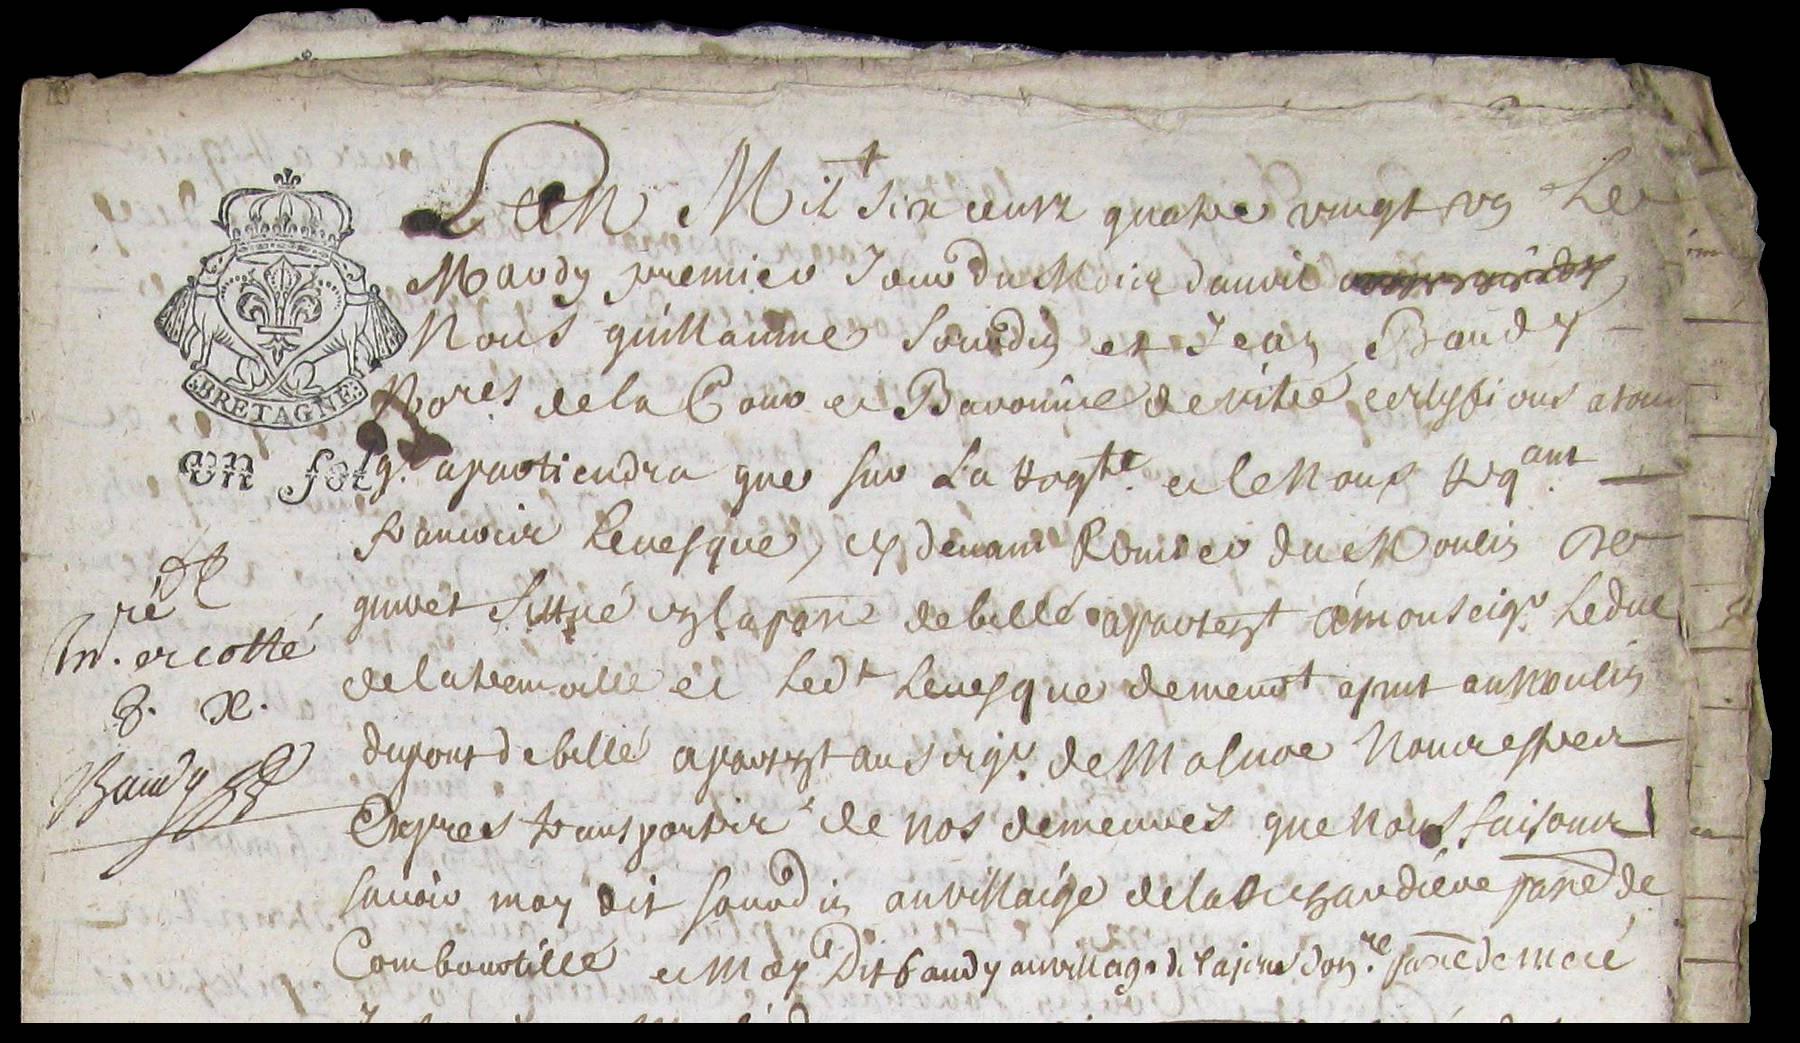 BRETAGNE
un sol
Lan Mil six cents quatre vingt un Le
Mardy premier Jour du Mois dauvil
Nous guillaume Sourdin et Jean Baudy
Nores de la Cour et Baronnie de vitré certyfions a tous
q. apartiendra que sur La reqte. et le nous reqant
francois Levesque, cy devant du Moulin de
situé en la parr de billé apartent a monseigr. Le duc
de la tremoille et Ledt Levesque demeurt apnt au moulin
du pont de billé apartent au seigr. de Malnoe Nous estre
Expres transportés de nos demeures que nous faisons
savoir moy dit sourdin au village de la parre de
Combourtillé et Moy Dit baudy au village de la parre de mecé
ré
In. et cotté
Baudy